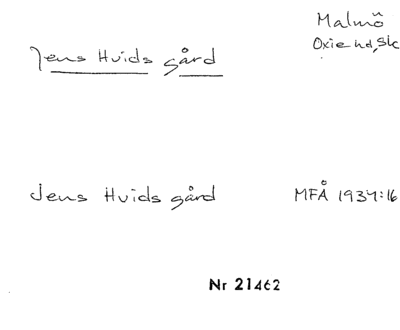 Malmö
Oxie hd, Sk
Jens Hvids gård
Jens Hvids gård MFÅ 1934:16
Nr 21462